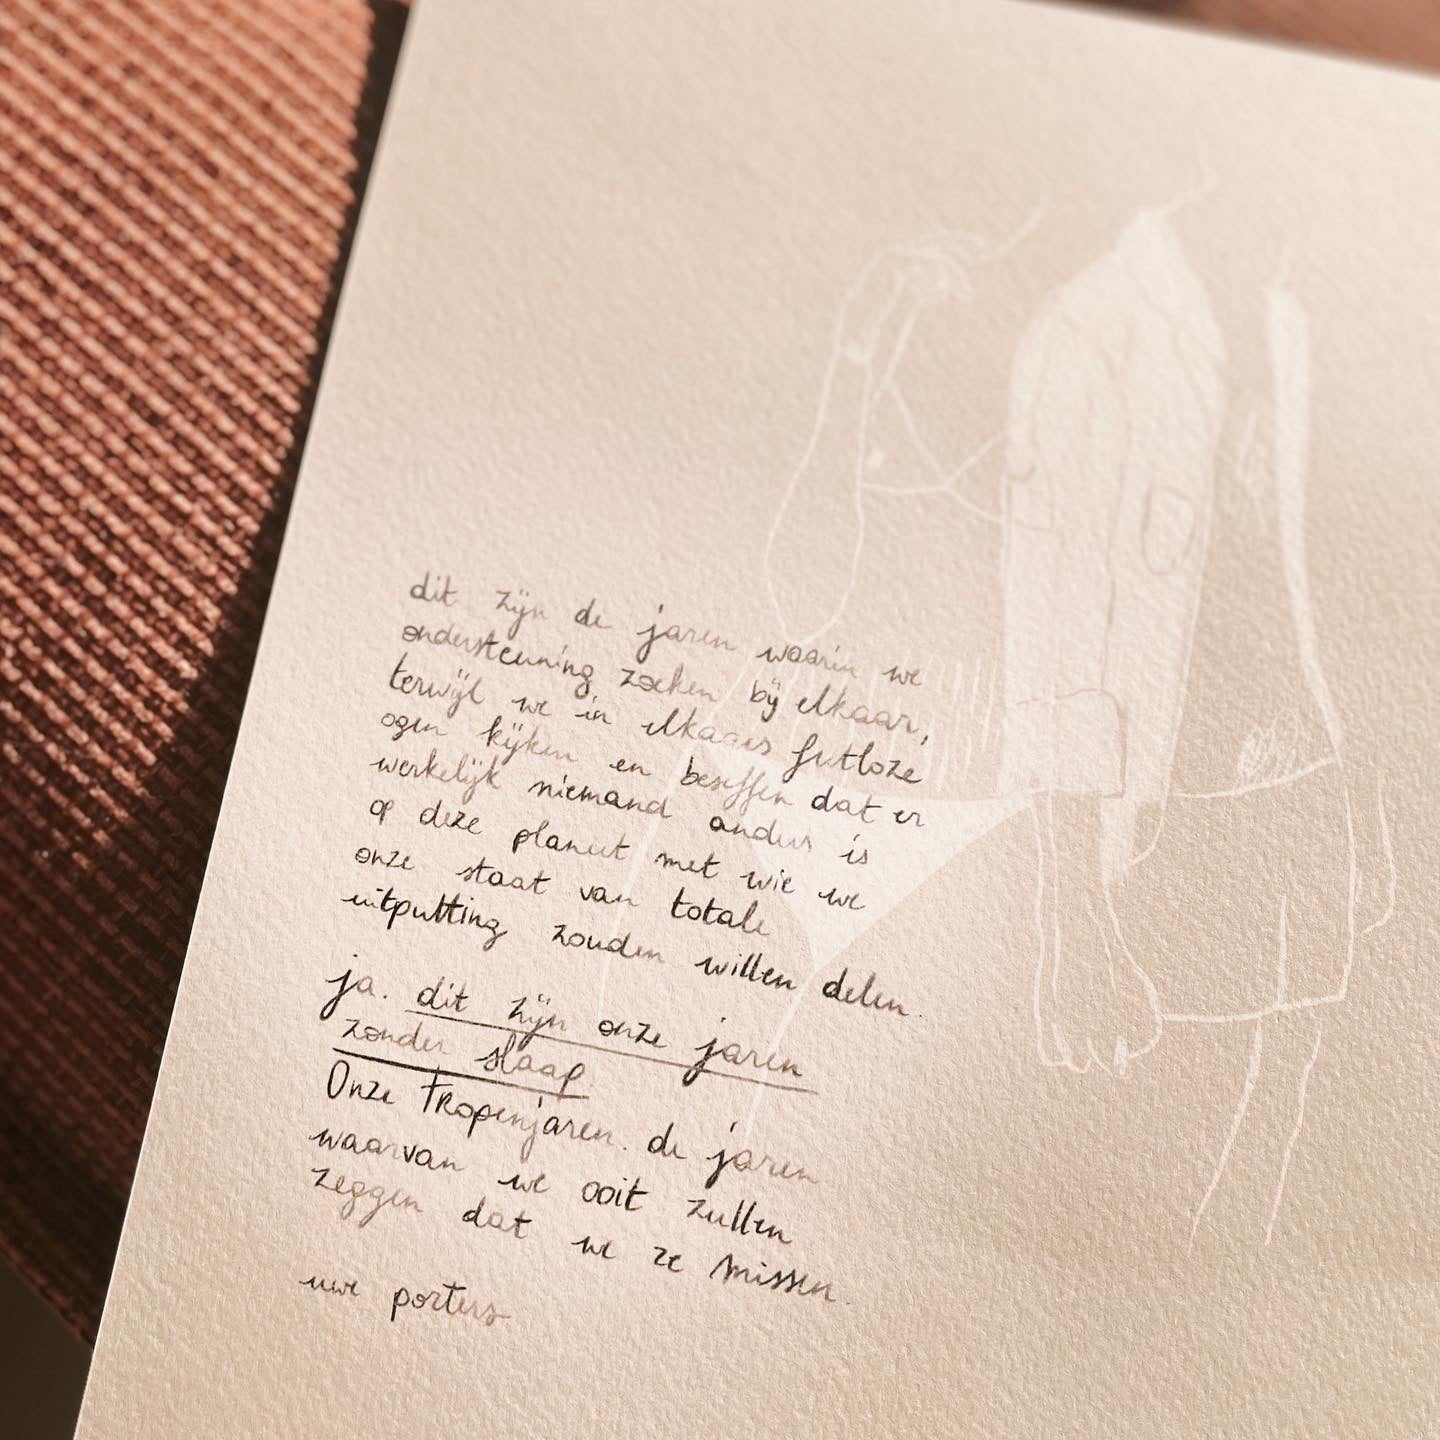 dit zijn de jaren waarin we
ondersteuning zoeken bij elkaar,
terwijl we in elkaars futloze
ogen kijken en beseffen dat er
werkelijk niemand anders is
op deze planeet met wie we
onze staat van totale
uitputting zouden willen delen.
ja. dit zijn onze jaren
zonder slaap.
Onze tropenjaren. de jaren
waarvan we ooit zullen
zeggen dat we ze missen.
uwe porters